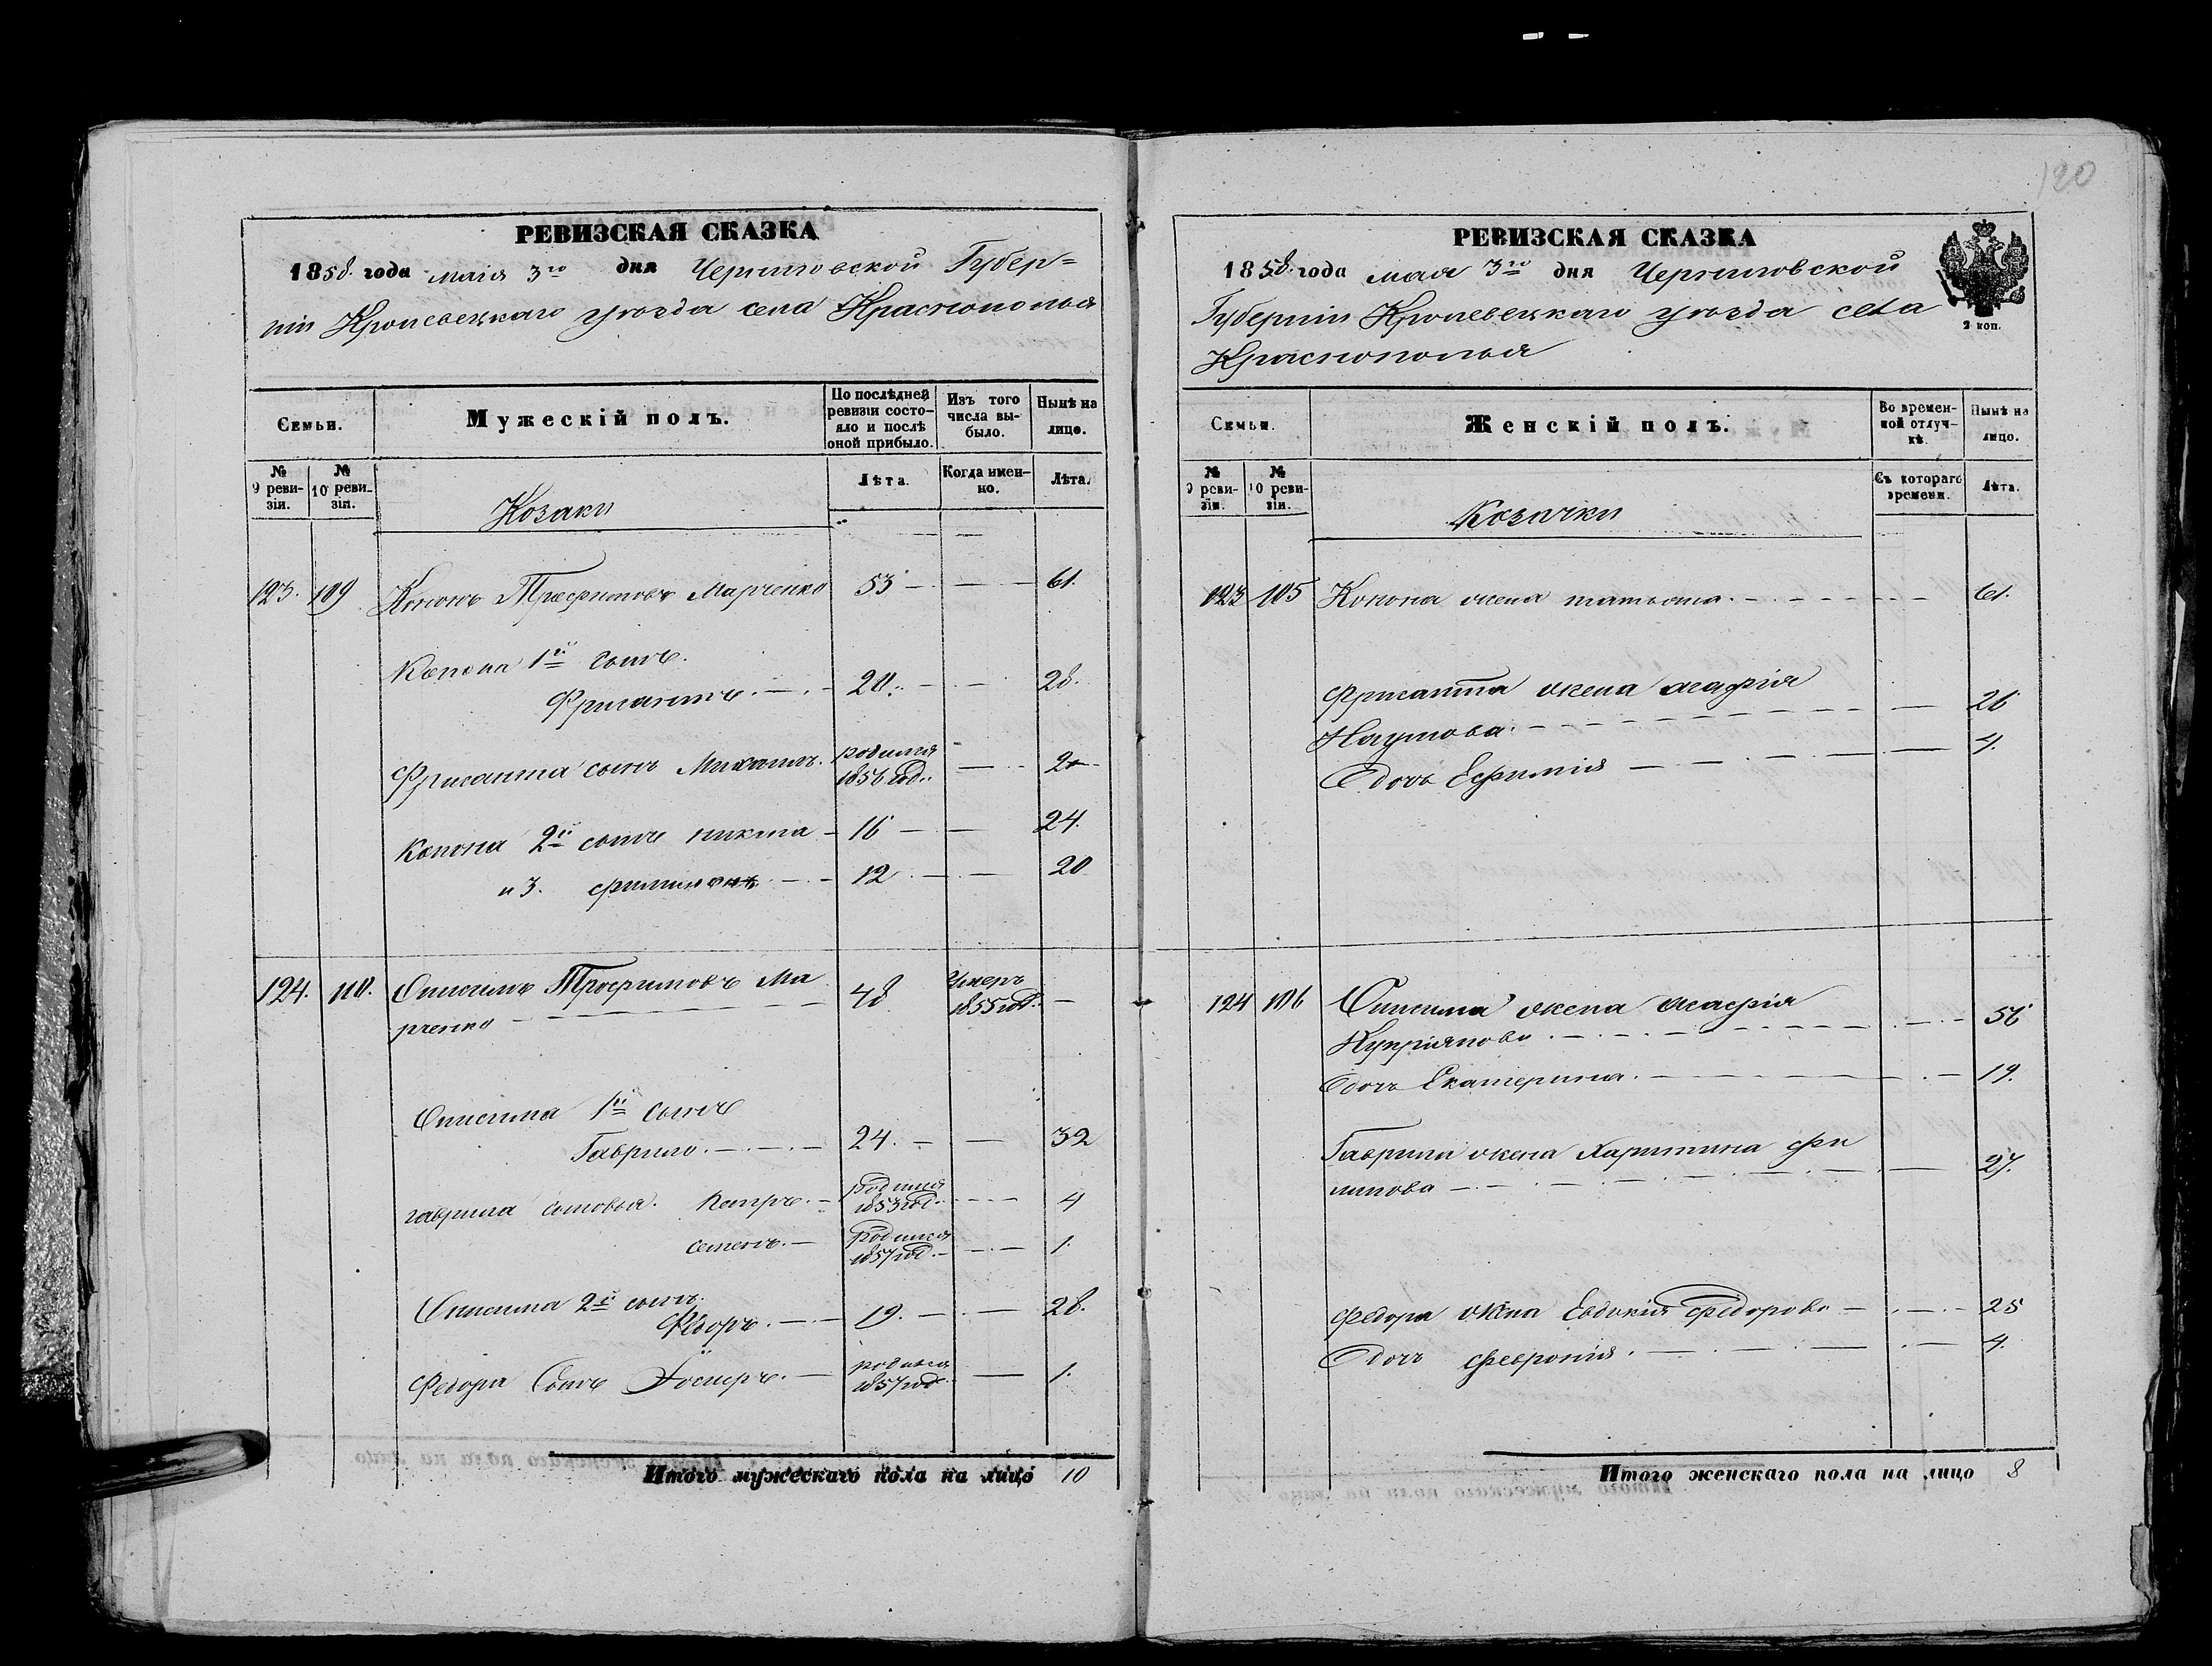 120
РЕВИЗСКАЯ СКАЗКА
1858. года маія 3го дня Черниговской Губер=
ніи Кролевецкаго уѣзда села Краснополья
Семьи.
Мужескій полъ.
По послѣдней ревизіи состояло и послѣ оной прибыло.
Изъ того числа выбыло.
Нынѣ на лице.
№ 9 ревизіи.
№ 10 ревизіи.
Козаки
Лѣта.
Когда именно.
Лѣта.
123. 109 Кононъ Трофимовъ Марченко 53 — — 61.
Конона 1й сынъ.
20. — — 28.
Михаилъ. родился 1856 год. — 2
Конона 2й сынъ никита — 16 — — 24.
и 3. — 12 — — 20
124. 110. Онисимъ Трофимовъ Ма 48 Умеръ 1855 год. —
рченко
Онисима 1й сынъ
Гаврило. — 24. — — 32
гаврила сыновья. Петръ. — родился 1853 год. — 4
семенъ. — Родился 1857 год. — 1.
Онисима 2й сынъ.
Ѳедоръ. — 19. — — 28.
Федора Сынъ — родился 1857 год — 1.
Итого мужескаго пола на лицо 10
РЕВИЗСКАЯ СКАЗКА
1858. года мая 3го дня Черниговской
Губерніи Кролевецкаго уѣзда села
Краснополья
2 коп.
Семьи.
Женскій полъ.
Во временной отлучкѣ.
Нынѣ на лицо.
№ 9 ревизіи.
№ 10 ревизіи.
Козачки
Съ котораго времени.
Лѣта.
123 105 Конона жена татьяна. — 61.
жена агафія
Наумова. — 26
дочь Ефимія — 4.
124 106 Онисима жена агафія
Купріянова. — 56
дочь Екатерина. — 19.
Гаврила жена Харитина фи
липова — 27.
Федора жена Евдокія Федорова — 25
дочь февронія. — 4.
Итого женскаго пола на лицо 8